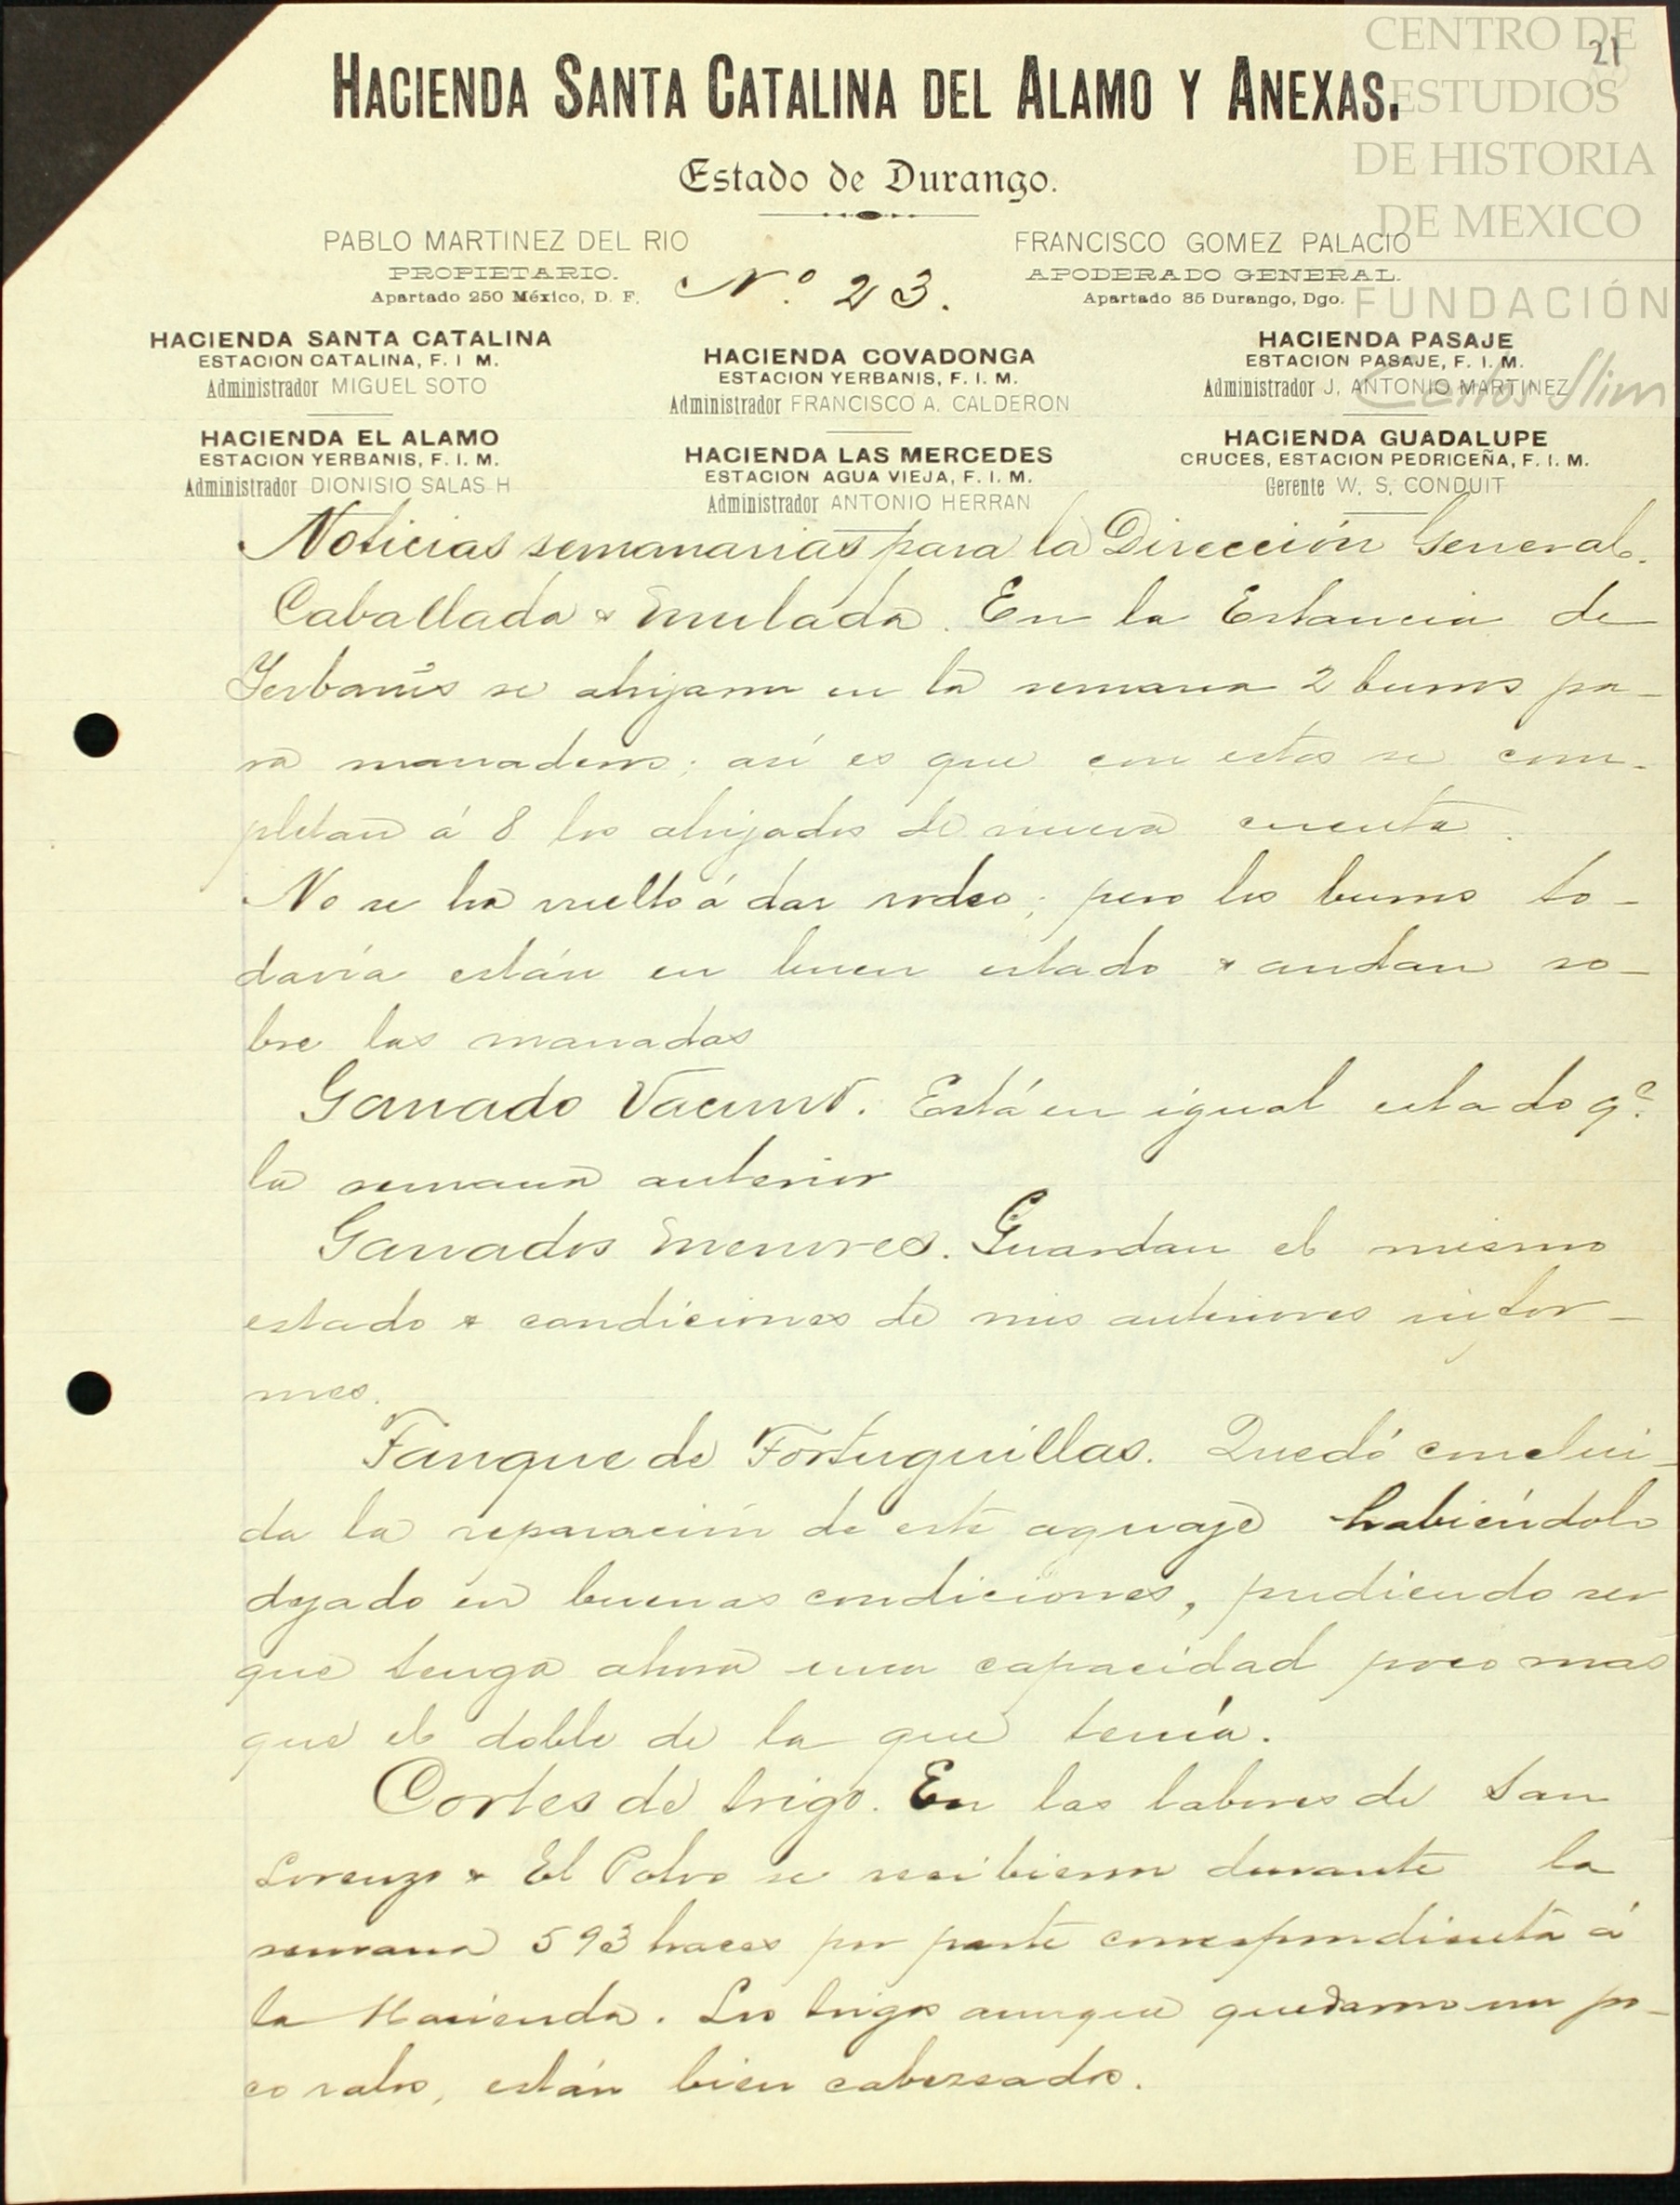 CENTRO DE
ESTUDIOS
DE HISTORIA
DE MEXICO
FUNDACIÓN
Carlos Slim
21
HACIENDA SANTA CATALINA DEL ALAMO Y ANEXAS.
Estado de Durango.
PABLO MARTINEZ DEL RIO
PROPIETARIO.
Apartado 250 México, D. F.
Nº 23.
FRANCISCO GOMEZ PALACIO
APODERADO GENERAL.
Apartado 85 Durango, Dgo.
HACIENDA SANTA CATALINA
ESTACION CATALINA, F. I M.
Administrador MIGUEL SOTO
HACIENDA EL ALAMO
ESTACION YERBANIS, F. I. M.
Administrador DIONISIO SALAS H
HACIENDA COVADONGA
ESTACION YERBANIS, F. I. M.
Administrador FRANCISCO A. CALDERON
HACIENDA LAS MERCEDES
ESTACION AGUA VIEJA, F. I. M.
Administrador ANTONIO HERRAN
HACIENDA PASAJE
ESTACION PASAJE, F. I. M.
Administrador J. ANTONIO MARTINEZ
HACIENDA GUADALUPE
CRUCES, ESTACION PEDRICEÑA, F. I. M.
Gerente W. S. CONDUIT
Noticias semanarias para la Dirección General.
Caballada & mulada. En la Estancia de
Yerbanís se ahijaron en la semana 2 burros pa-
ra manaderos; así es que con estos se com-
pletan á 8 los ahijados de nueva cuenta.
No se ha vuelto á dar rodeo; pero los burros to-
davía están en buen estado & andan so-
bre las manadas
Ganado Vacuno. Está en igual estado qe.
la semana anterior
Ganados menores. Guardan el mismo
estado & condiciones de mis anteriores infor-
mes.
Tanque de Tortuguillas. Quedó conclui-
da la reparación de este aguaje habiéndolo
dejado en buenas condiciones, pudiendo ser
que tenga ahora una capacidad poco mas
que el doble de la que tenía.
Cortes de trigo. En las labores de San
Lorenzo & El Polvo se recibieron durante la
semana 593 haces por parte correspondiente á
la Hacienda. Los trigos aunque quedaron un po-
co ralos, están bien cabeceados.